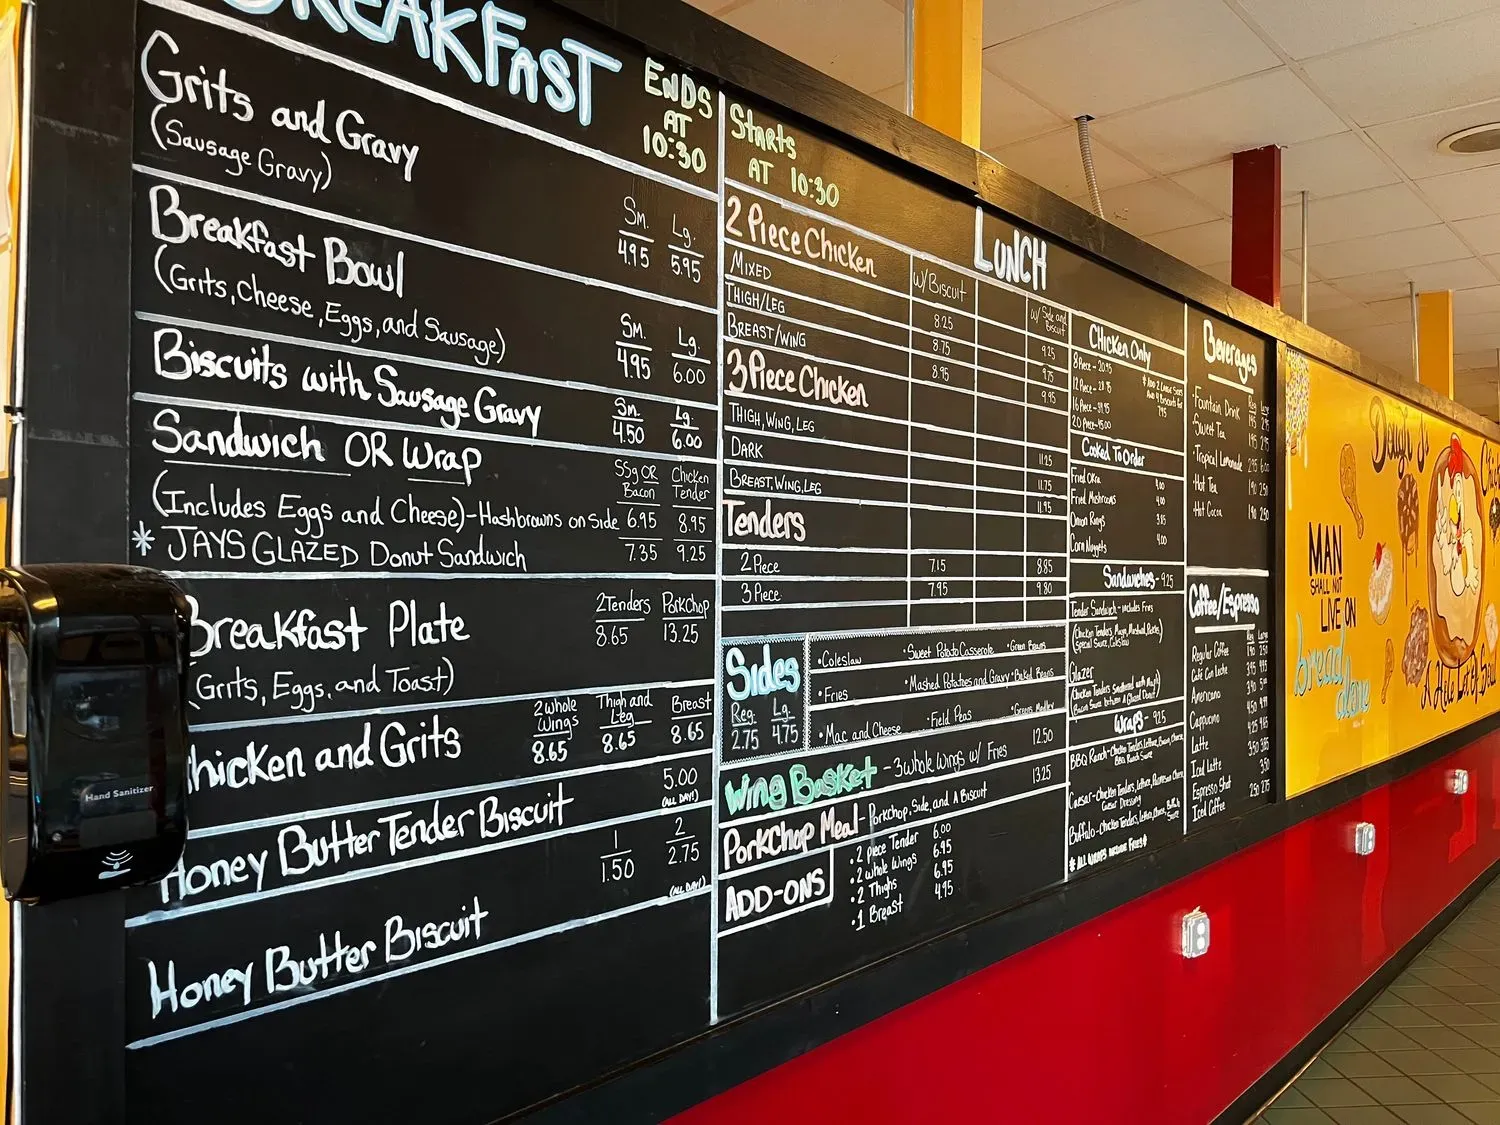 BREAKFAST
ENDS
AT
10:30
Grits and Gravy
(Sausage Gravy)
Sm. Lg.
4.95 5.95
Breakfast Bowl
(Grits, Cheese, Eggs, and Sausage)
Sm. Lg.
4.95 6.00
Biscuits with Sausage Gravy
Sm. Lg.
4.50 6.00
Sandwich OR Wrap
SSg OR Bacon
Chicken Tender
(Includes Eggs and Cheese) - Hashbrowns on Side 6.95 8.95
* JAYS GLAZED Donut Sandwich 7.35 9.25
Breakfast Plate
2Tenders PorkChop
8.65 13.25
(Grits, Eggs, and Toast)
Chicken and Grits
2 whole Wings
Thigh and Leg
Breast
8.65 8.65 8.65
Honey Butter Tender Biscuit
5.00
(ALL DAY!)
1 2
1.50 2.75
(ALL DAY!)
Honey Butter Biscuit
Starts
AT 10:30
LUNCH
2 Piece Chicken
w/Biscuit
w/ Side and Biscuit
MIXED
THIGH/LEG
8.25 9.25
BREAST/WING
8.75 9.75
8.95 9.95
3 Piece Chicken
THIGH, WING, LEG
11.25
DARK
11.75
BREAST, WING, LEG
11.95
Tenders
2 Piece 7.15 8.85
3 Piece 7.95 9.80
Sides
Reg. Lg.
2.75 4.75
•Coleslaw •Sweet Potato Casserole •Green Beans
•Fries •Mashed Potatoes and Gravy •Baked Beans
•Mac and Cheese •Field Peas •Greens Medley
Wing Basket - 3 whole Wings w/ Fries 12.50
PorkChop Meal - Porkchop, Side, and A Biscuit 13.25
ADD-ONS
•2 piece Tender 6.00
•2 whole Wings 6.95
•2 Thighs 6.95
•1 Breast 4.95
Chicken Only
8 Piece - 20.95
12 Piece
16 Piece
20 Piece
Cooked To Order
Fried Okra 4.00
Fried Mushrooms 4.00
Onion Rings
Corn Nuggets 4.00
Sandwiches - 9.25
Tender Sandwich - includes Fries
(Chicken Tenders, Mayo, Mustard, Pickles,
Special Sauce, Coleslaw)
Glazer
(Chicken Tenders Smothered with Maple
Bacon Sauce between A Glazed Donut)
Wraps - 9.25
BBQ Ranch - Chicken Tenders, Lettuce, Bacon, Cheese,
BBQ Ranch Sauce
Caesar - Chicken Tenders, Lettuce, Parmesan Cheese,
Caesar Dressing
Buffalo - Chicken Tenders, Lettuce, Cheese, Buffalo
Sauce
* ALL WRAPS INCLUDE FRIES *
Beverages
•Fountain Drink
•Sweet Tea
•Tropical Lemonade
•Hot Tea
•Hot Cocoa
Coffee/Espresso
Regular Coffee
Café Con Leche
Americano
Cappuccino
Latte
Iced Latte
Espresso Shot
Iced Coffee
Hand Sanitizer
MAN
SHALL NOT
LIVE ON
bread
alone
Dough Is